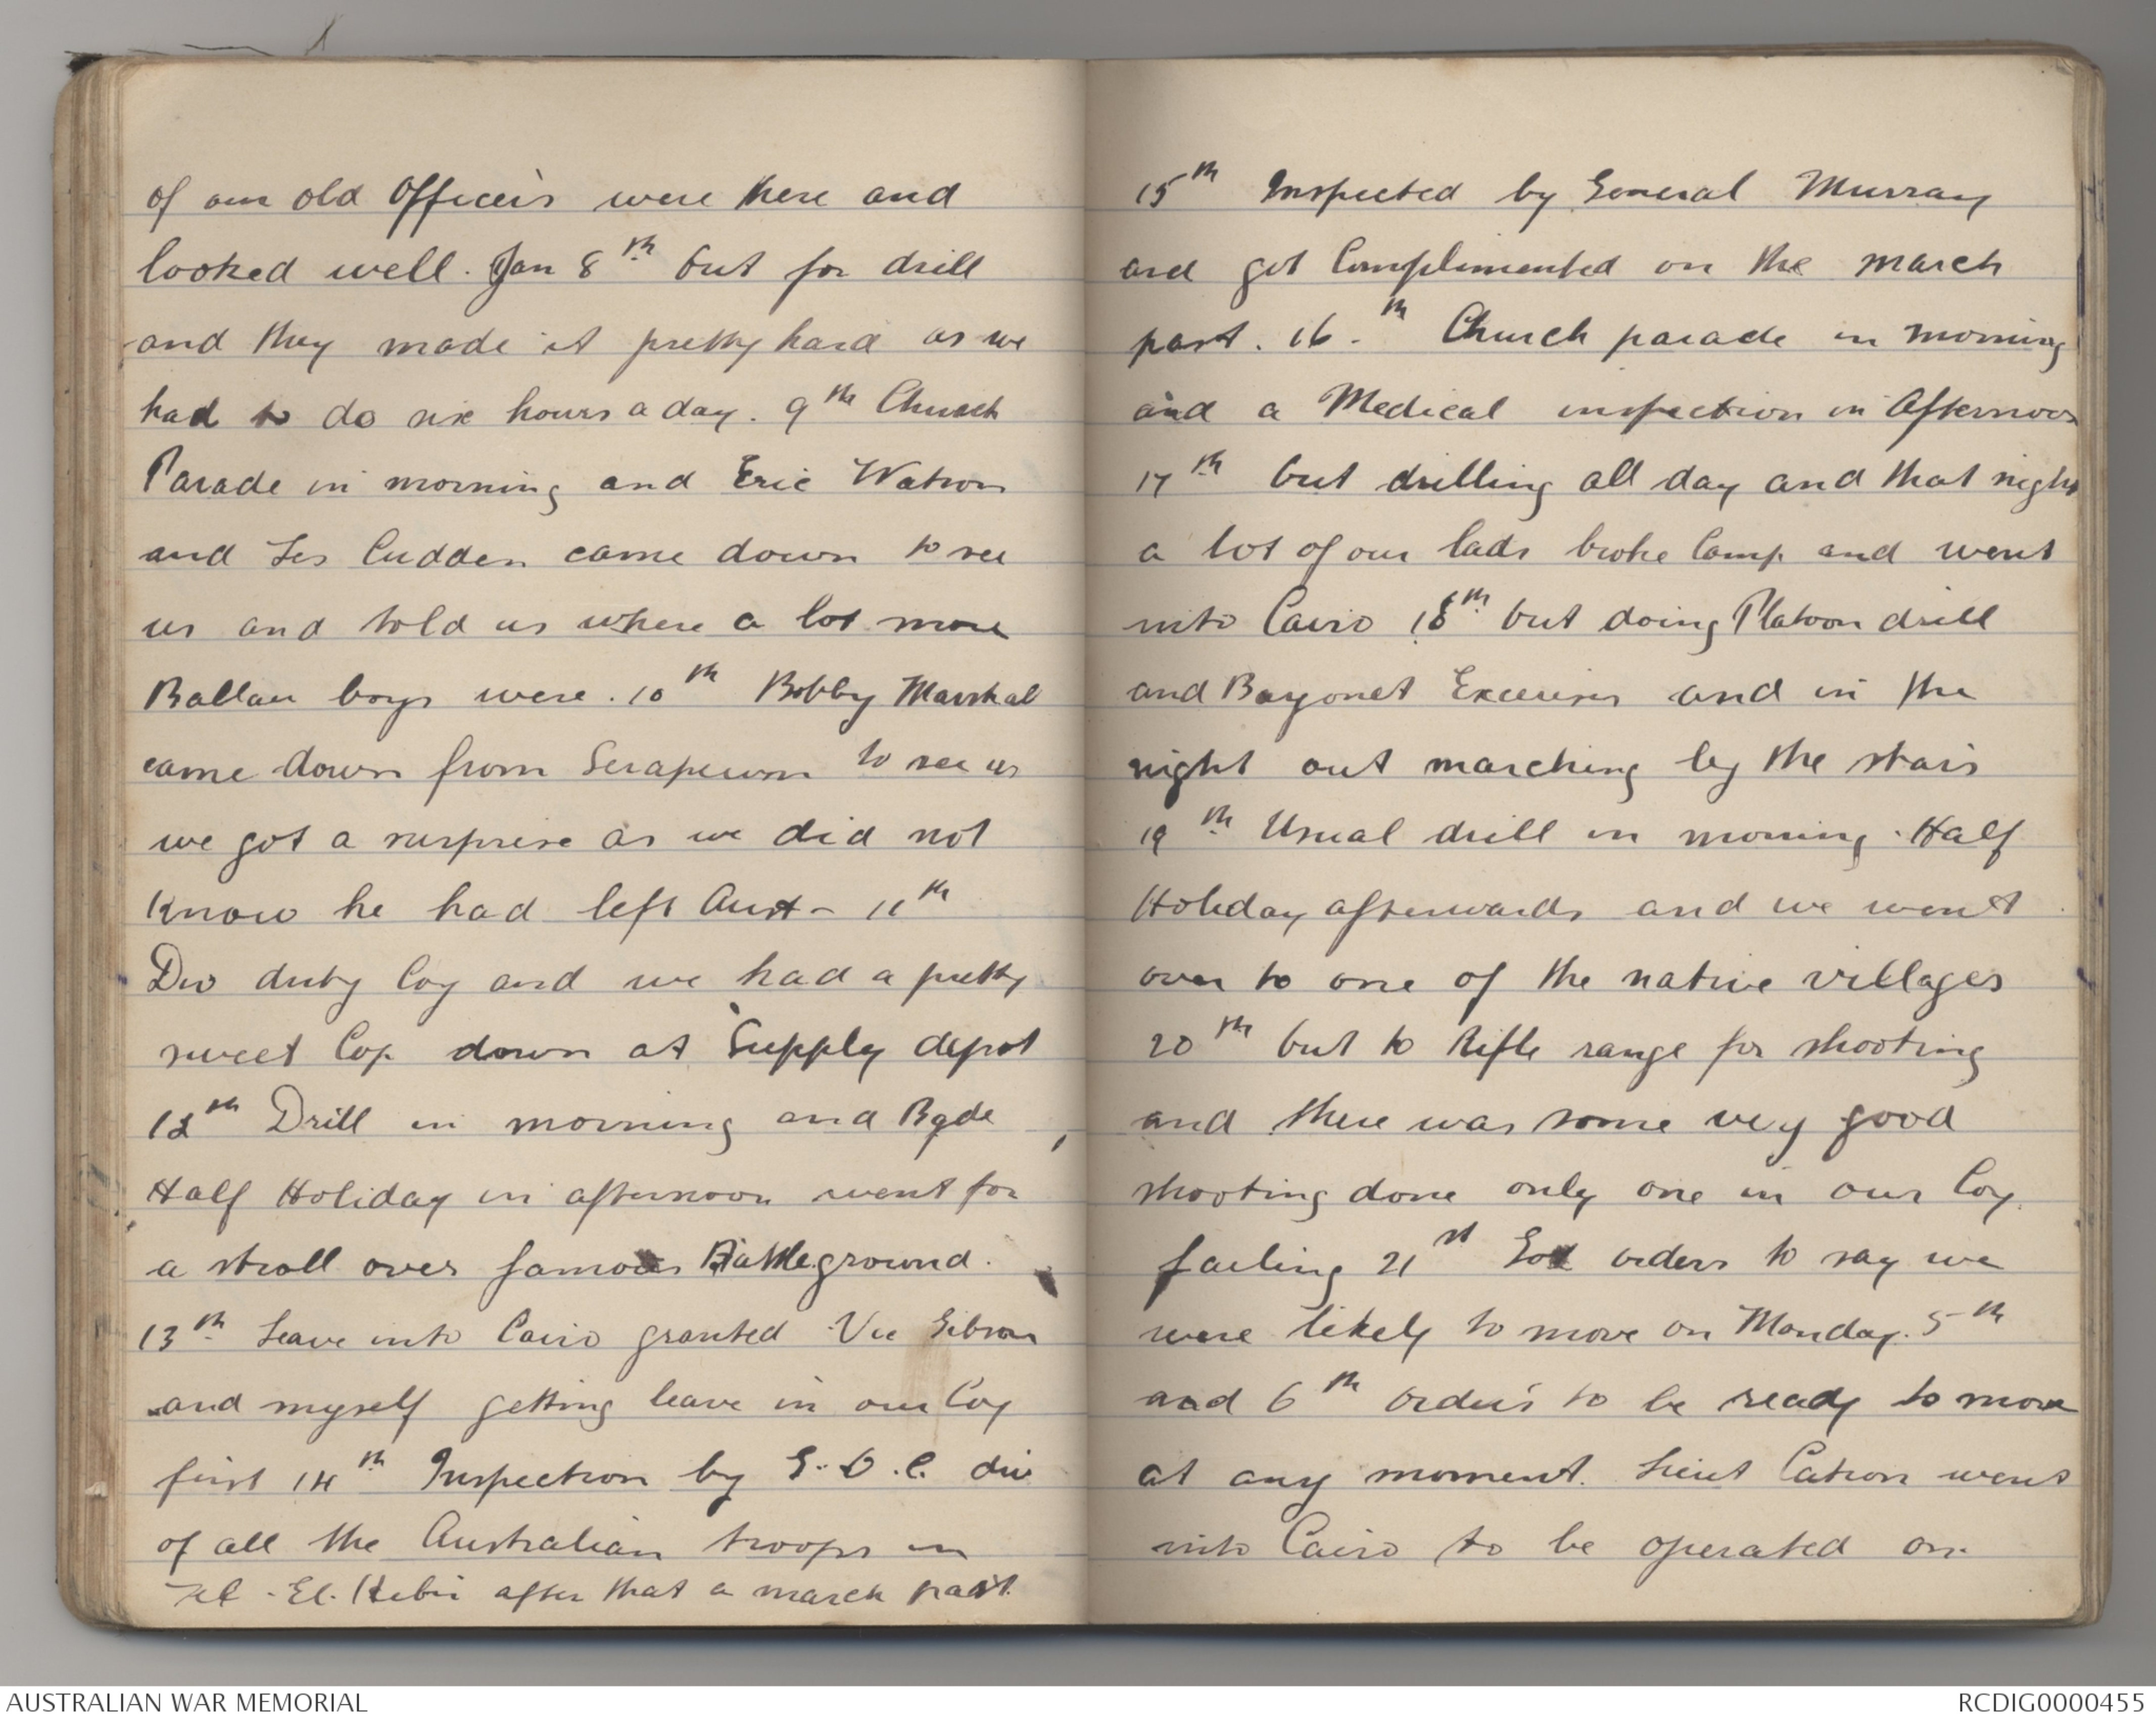 of our old Officers were here and
looked well. Jan 8th Out for drill
and they made it pretty hard as we
had to do six hours a day. 9th Church
Parade in morning and Eric Watson
and Les Cudden came down to see
us and told us where a lot more
Ballan boys were. 10th Bobby Marshal
came down from Serapeum to see us
we got a surprise as we did not
know he had left Aust - 11th
Div duty Coy and we had a pretty
sweet Cop down at Supply depot
12th Drill in morning and Bgde
Half Holiday in afternoon went for
a stroll over famous Battleground.
13th Leave into Cairo granted Vic Gibson
and myself getting leave in our Coy
first 14th Inspection by G.O.C. div
of all the Australian troops in
Tel-El-Kebir after that a march past.
15th Inspected by General Murray
and got Complimented on the march
past. 16th Church parade in morning
and a Medical inspection in Afternoon
17th Out drilling all day and that night
a lot of our lads broke Camp and went
into Cairo 18th Out doing Platoon drill
and Bayonet Exercises and in the
night out marching by the stars
19th Usual drill in morning. Half
Holiday afterwards and we went
over to one of the native villages
20th Out to Rifle range for shooting
and there was some very good
shooting done only one in our Coy.
failing 21st Got orders to say we
were likely to move on Monday. 5th
and 6th orders to be ready to move
at any moment. Lieut Catron went
into Cairo to be operated on.
AUSTRALIAN WAR MEMORIAL
RCDIG0000455